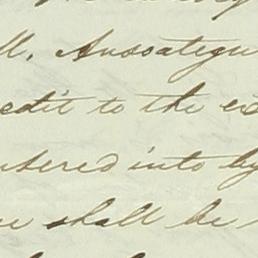 M. Ansoategui
edit to the ex
ntered into by
e shall be